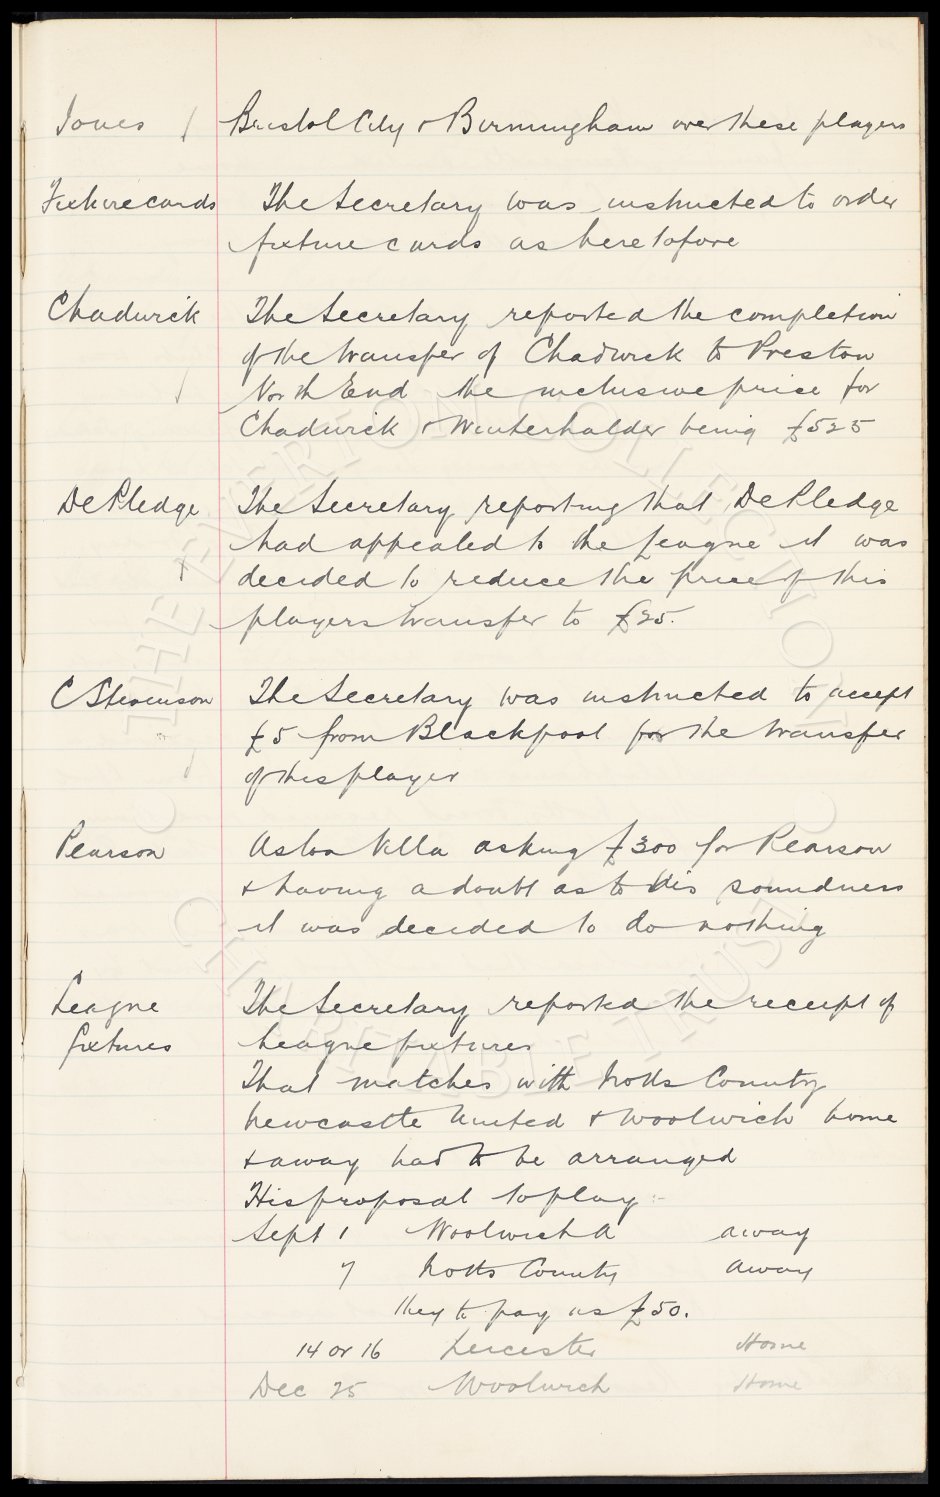 Jones } Bristol City & Birmingham over these players
Fixture cards The Secretary was instructed to order
fixture cards as heretofore
Chadwick The Secretary reported the completion
of the transfer of Chadwick to Preston
North End the inclusive price for
Chadwick & Winterhalder being £525
De Pledge The Secretary reporting that De Pledge
had appealed to the League it was
decided to reduce the price of this
players transfer to £25.
C Stevenson The Secretary was instructed to accept
£5 from Blackpool for the transfer
of this player
Pearson Aston Villa asking £300 for Pearson
& having a doubt as to his soundness
it was decided to do nothing
League The Secretary reported the receipt of
fixtures League fixtures
That matches with Notts County
Newcastle United & Woolwich home
& away had to be arranged
His proposal to play :-
Sept 1 Woolwich A away
7 Notts County away
they to pay us £50.
14 or 16 Leicester Home
Dec 25 Woolwich Home
© - THE EVERTON COLLECTION
CHARITABLE TRUST